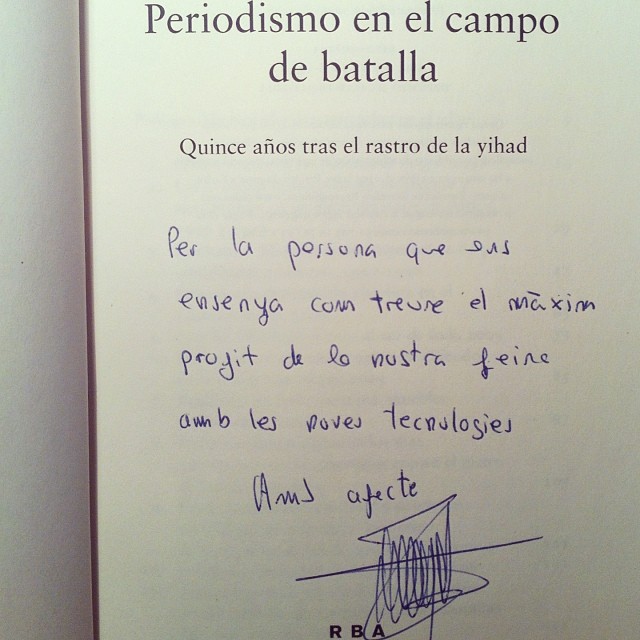 Periodismo en el campo
de batalla
Quince años tras el rastro de la yihad
Per la persona que ens
ensenya com treure el màxim
profit de la nostra feina
amb les noves tecnologies
Amb afecte
RBA